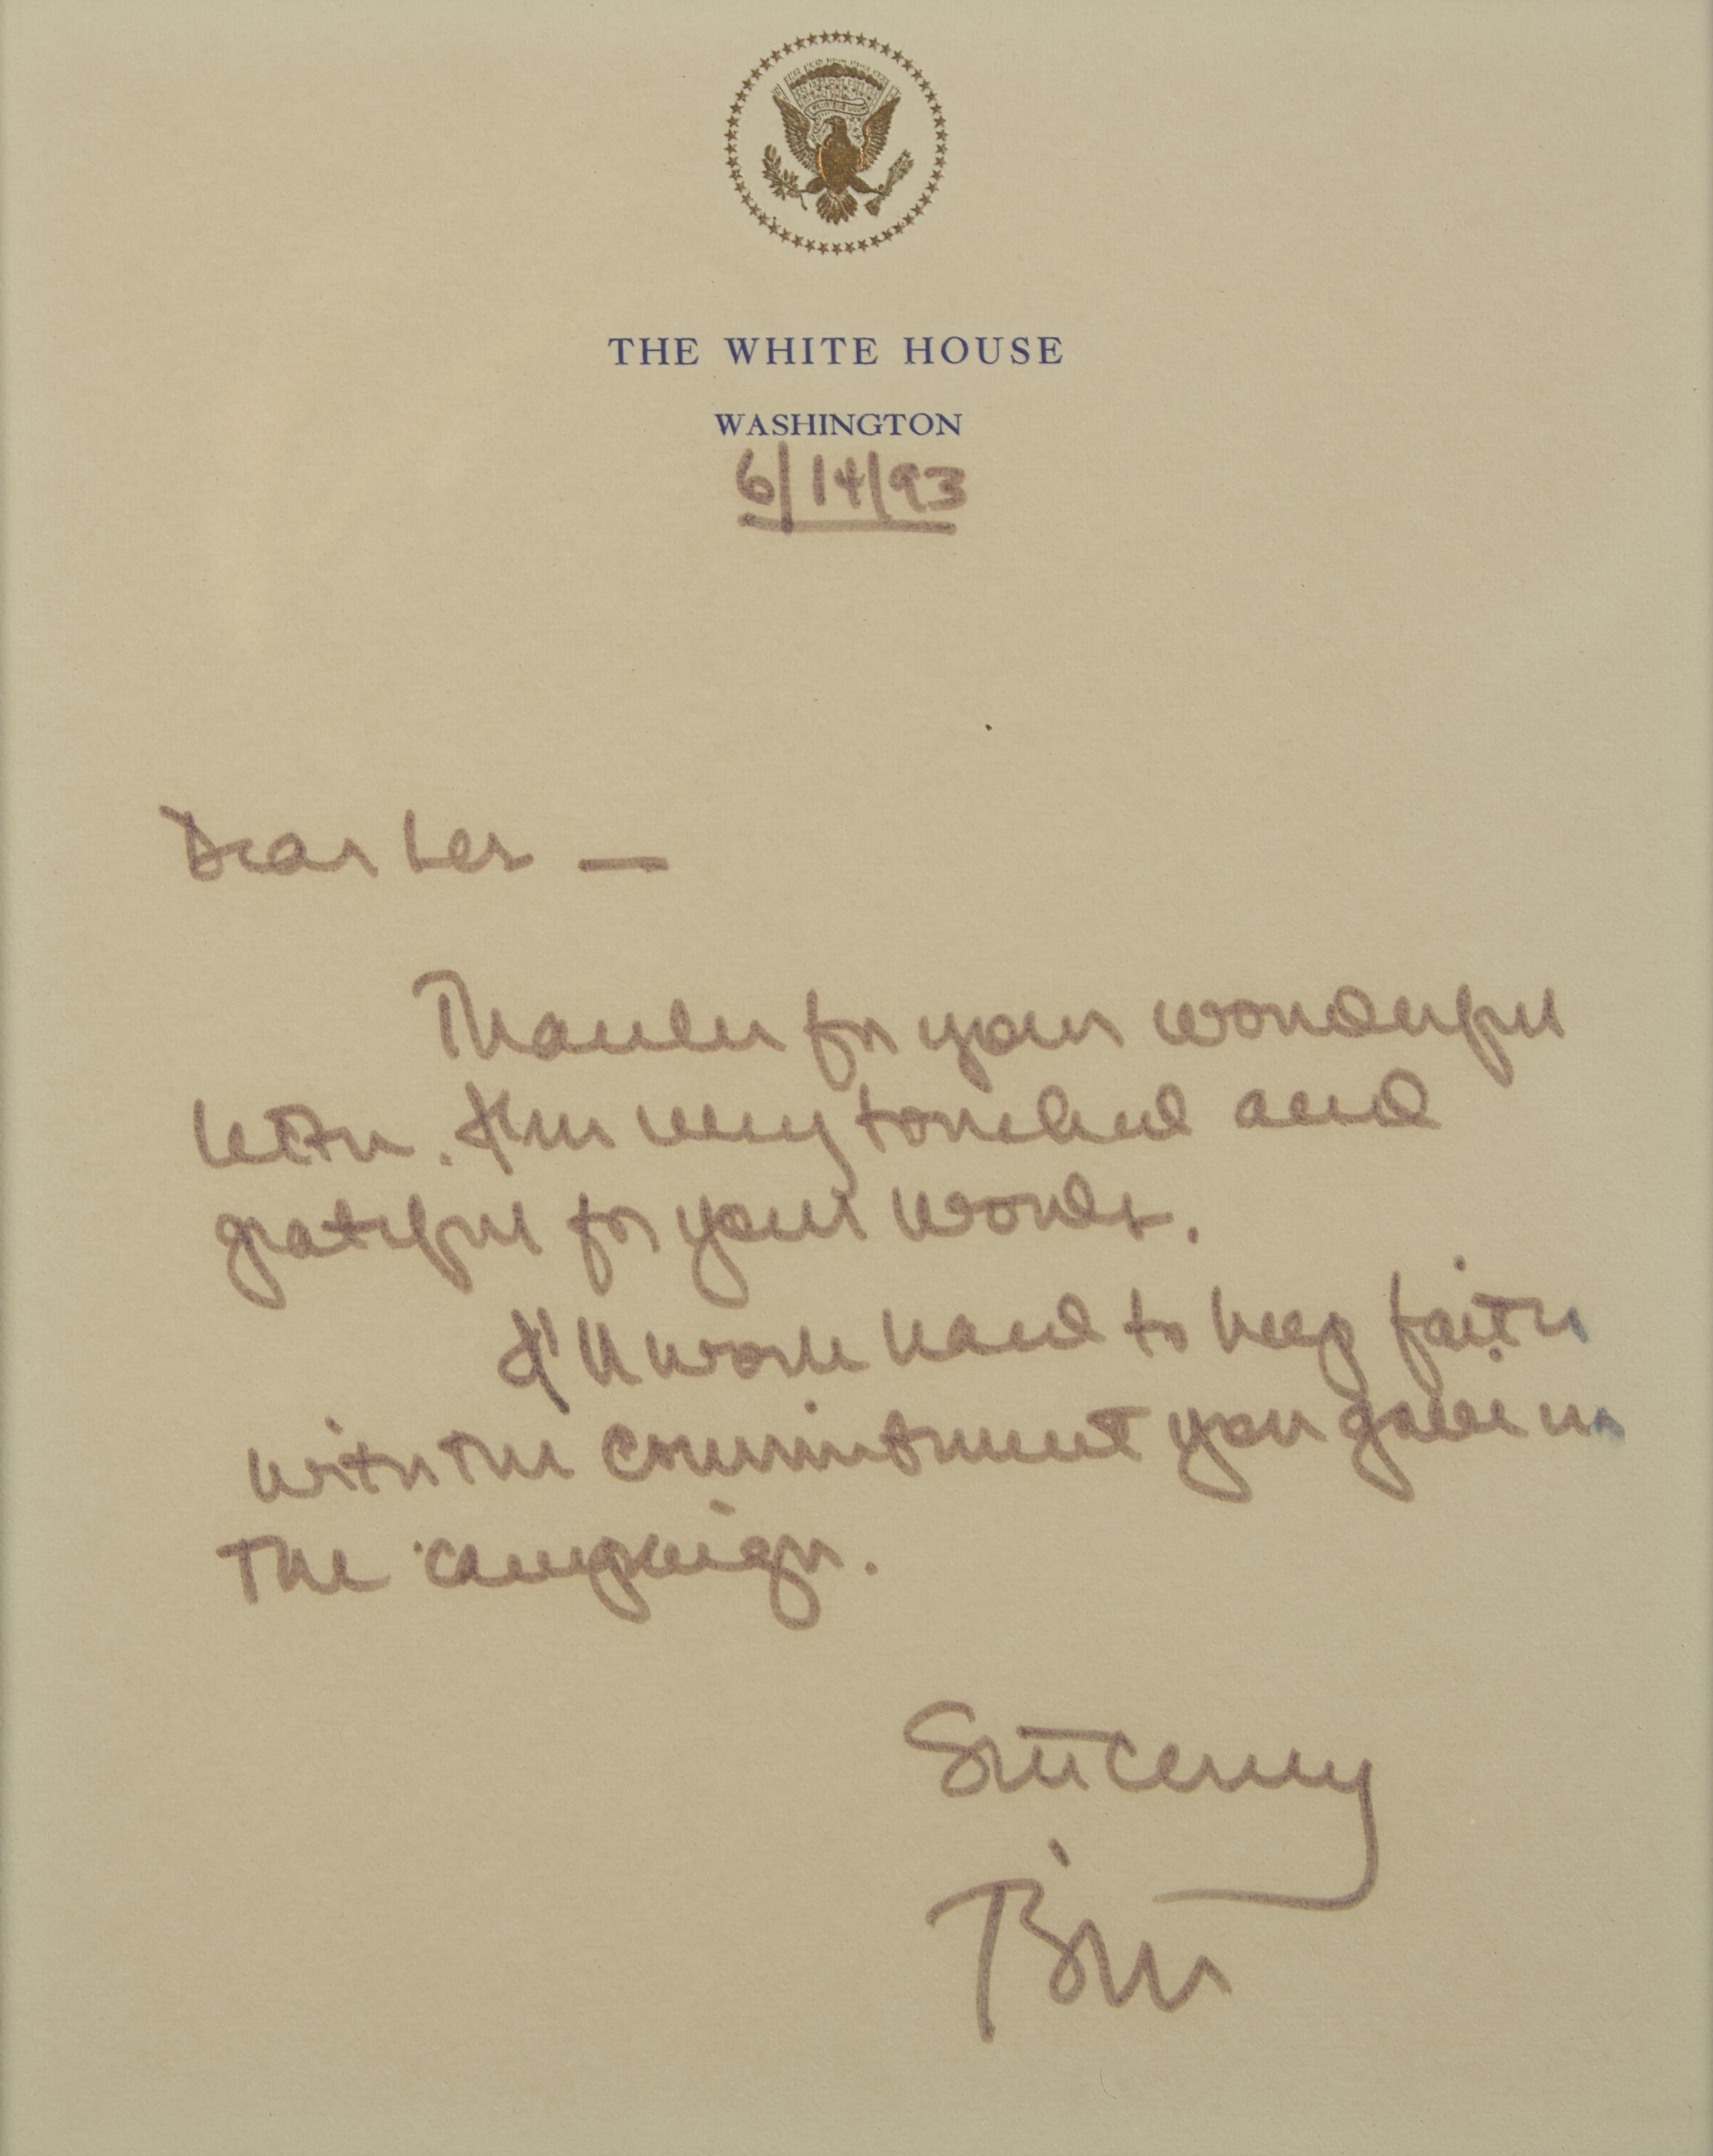 THE WHITE HOUSE
WASHINGTON
6/14/93
Dear Les —
Thanks for your wonderful
letter. I'm very touched and
grateful for your words.
I'll work hard to keep faith
with the commitment you gave in
the campaign.
Sincerely
Bill